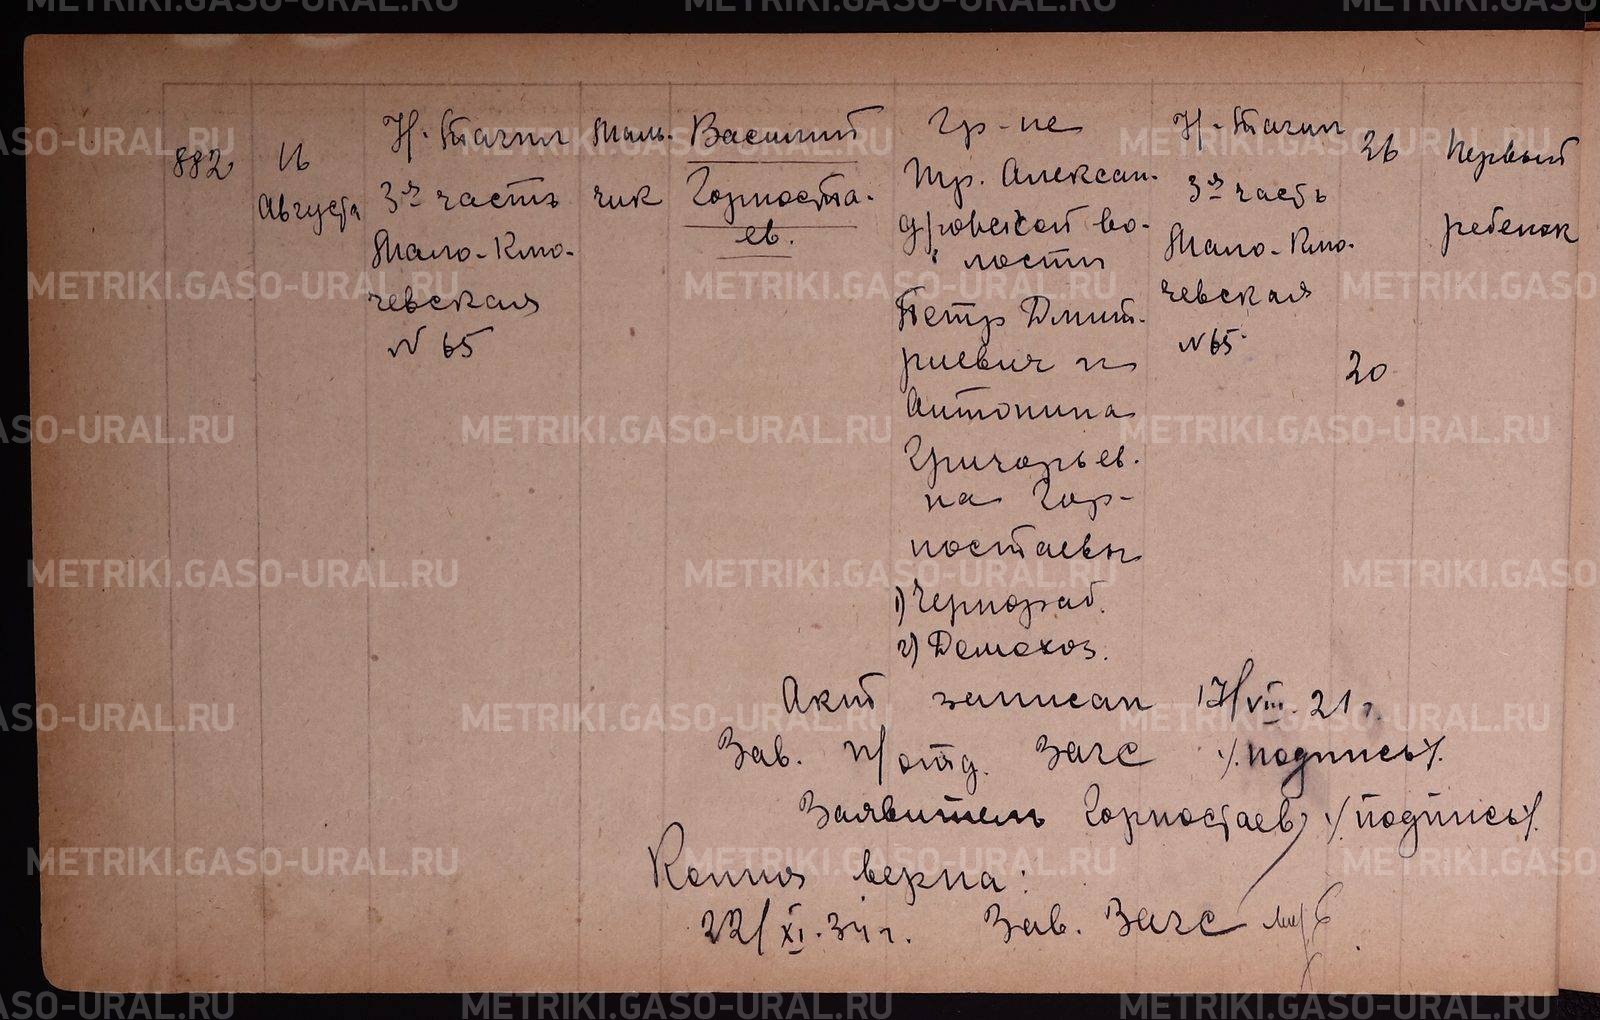 882
16
Августа
Н-Тагил
3я часть
Мало-Клю-
чевская
N 65
Маль-
чик
Василий
Горноста-
ев.
Гр-не
Алексан-
дровской во-
лости
Петр Дмит-
риевич и
Антонина
Григорьев-
на Гор-
ностаевы
1) Чернораб.
2) Домохоз.
Н-Тагил
3я часть
Мало-Клю-
чевская
N 65
26
20
Первый
ребенок
Акт записан 17/VIII. 21 г.
Зав. п/отд. Загс /.подпись/.
Заявитель Горностаев /.подпись/.
Копия верна:
22/XI. 34 г. Зав. Загс
METRIKI.GASO-URAL.RU